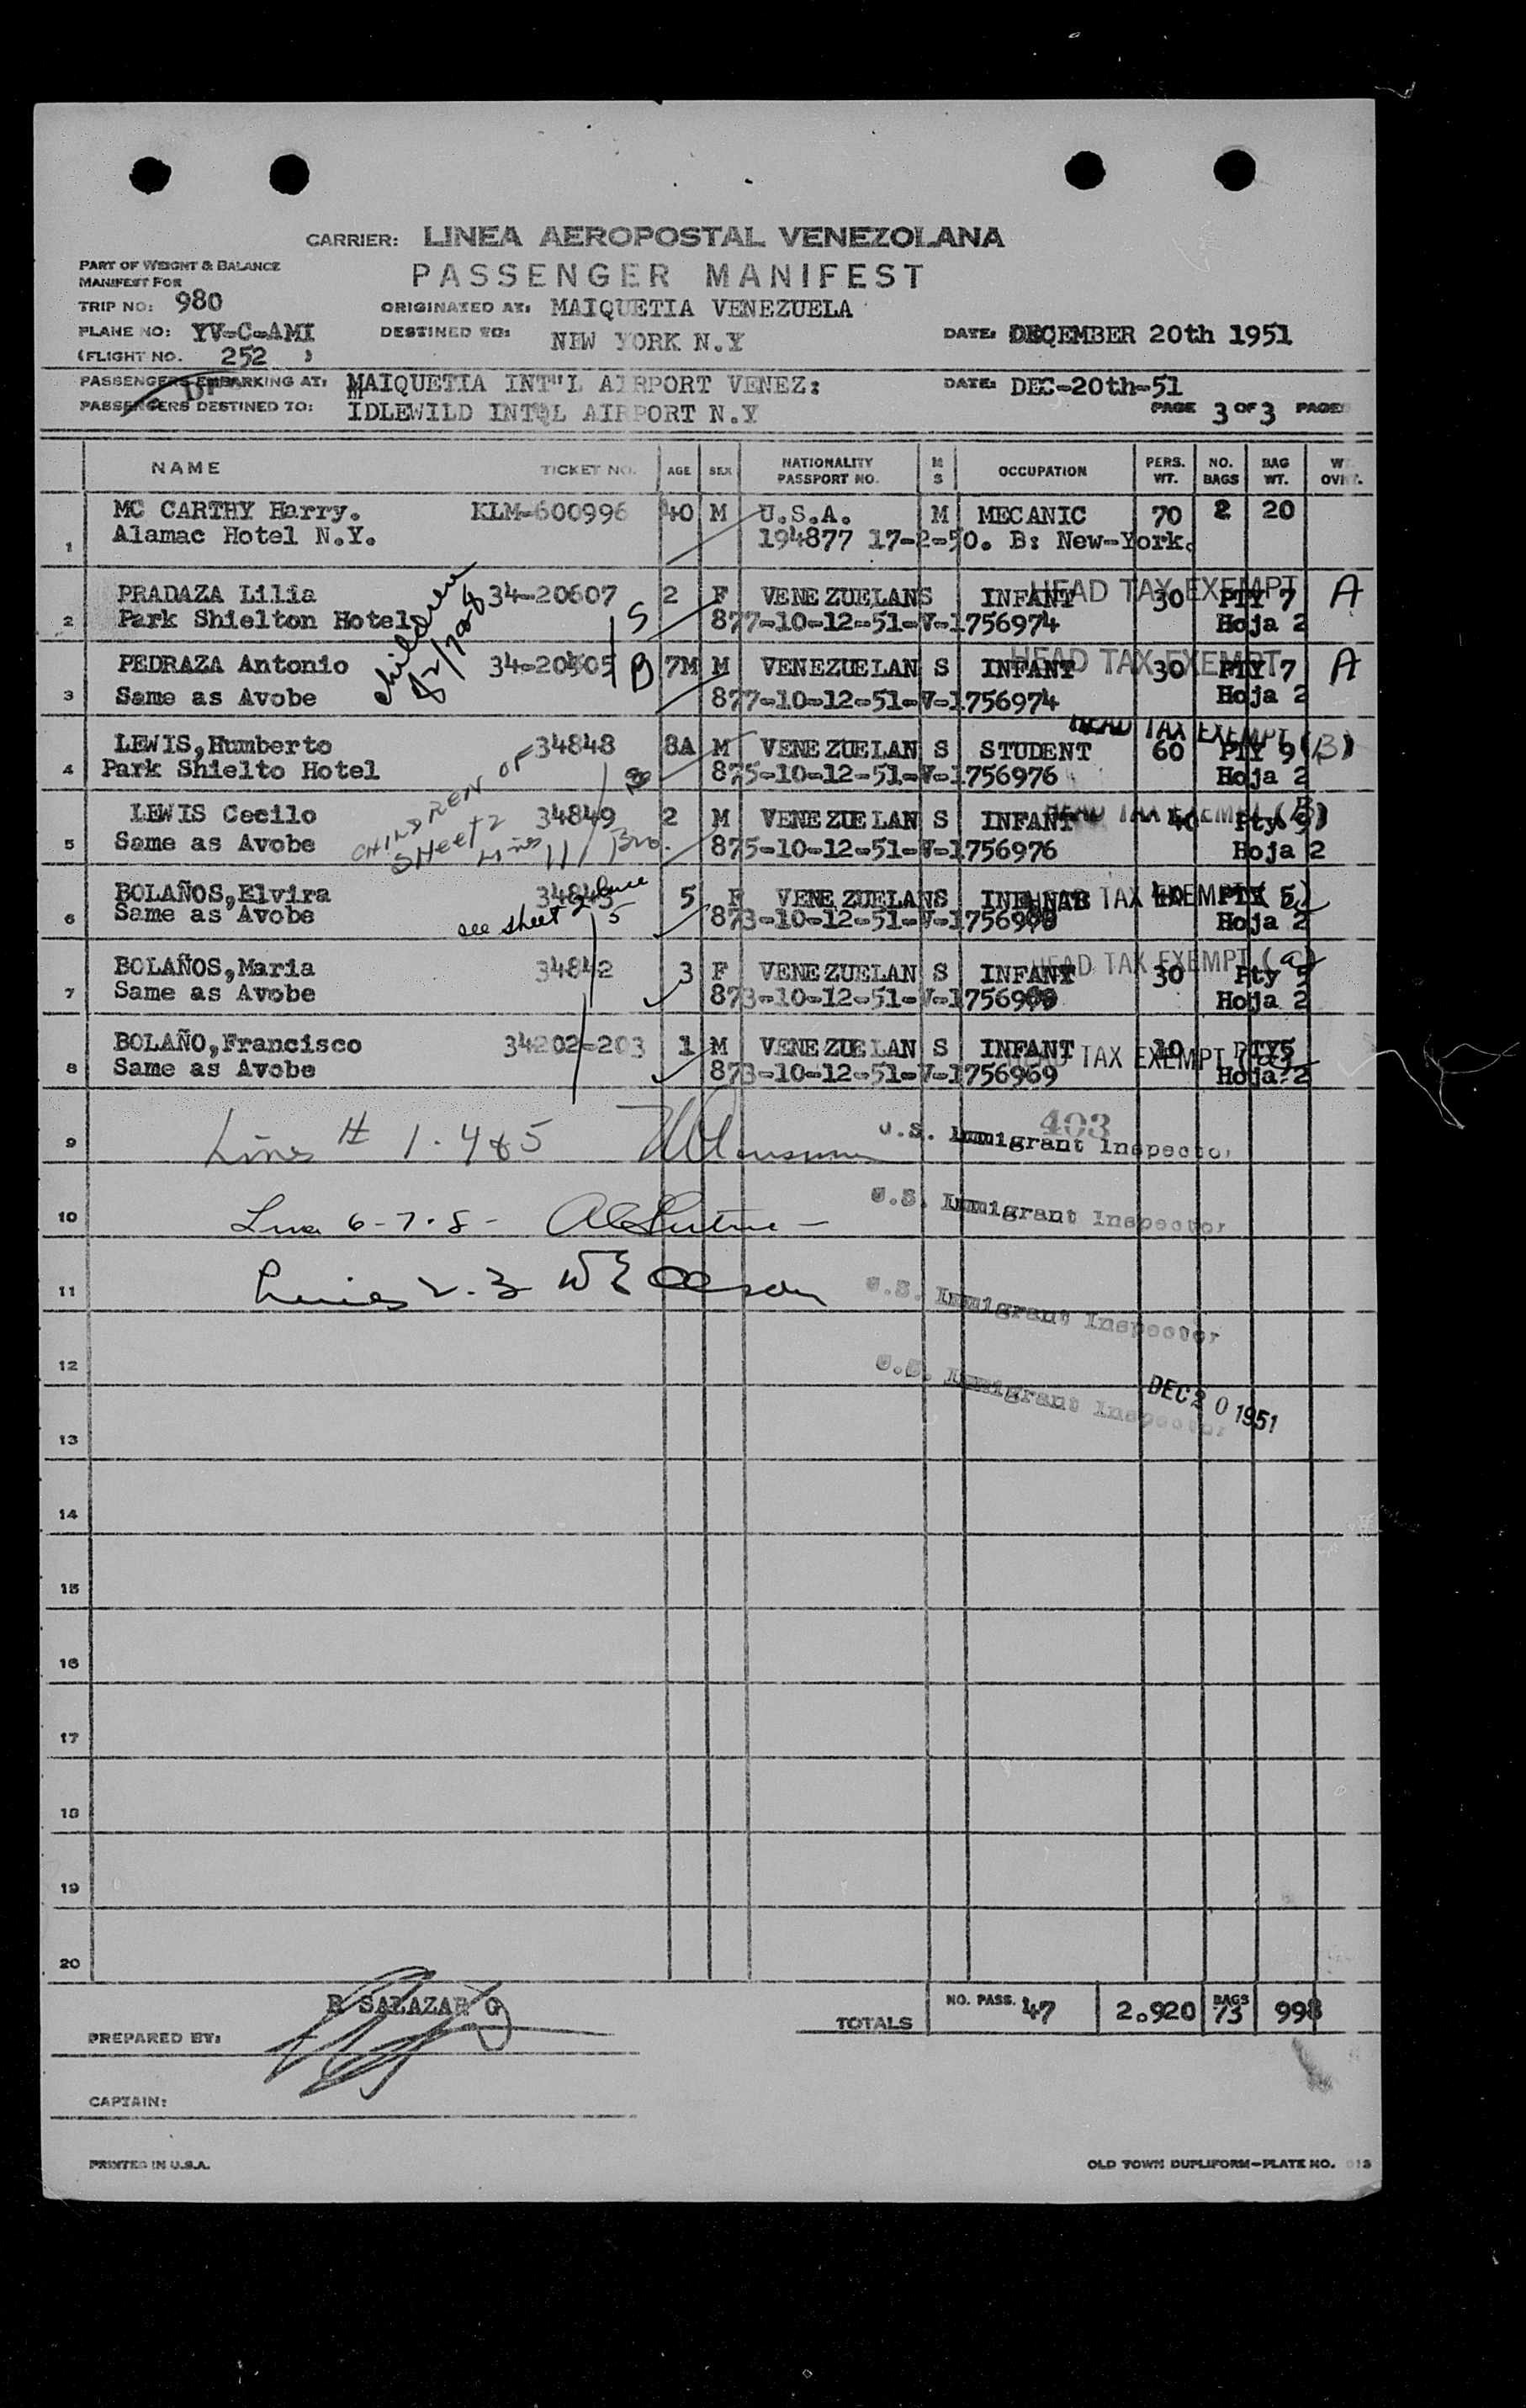 CARRIER: LINEA AEROPOSTAL VENEZOLANA
PART OF WEIGHT & BALANCE
MANIFEST FOR
PASSENGER MANIFEST
TRIP NO: 980
ORIGINATED AT: MAIQUETIA VENEZUELA
PLANE NO: YV-C-AMI
DESTINED TO: NEW YORK N.Y
DATE: DECEMBER 20th 1951
(FLIGHT NO. 252 )
PASSENGERS EMBARKING AT: MAIQUETIA INT"L AIRPORT VENEZ:
DATE: DEC-20th-51
PASSENGERS DESTINED TO: IDLEWILD INTQL AIRPORT N.Y
PAGE 3 OF 3 PAGES
NAME TICKET NO. AGE SEX NATIONALITY PASSPORT NO. M S OCCUPATION PERS. WT. NO. BAGS BAG WT. WT. OVWT.
1 MC CARTHY Harry. KLM-600996 40 M U.S.A. M MECANIC 70 2 20
Alamac Hotel N.Y. 194877 17-2-50. B: New-York.
2 PRADAZA Lilia 34-20607 2 F VENEZUELAN S INFANT HEAD TAX EXEMPT 30 PTY 7 A
Park Shielton Hotel S 877-10-12-51-V-1756974 Hoja 2
children
3 PEDRAZA Antonio 34-20505 B 7M M VENEZUELAN S INFANT HEAD TAX EXEMPT 30 PTY 7 A
Same as Avobe 877-10-12-51-V-1756974 Hoja 2
4 LEWIS,Humberto 34848 8A M VENEZUELAN S STUDENT HEAD TAX EXEMPT 60 PTY 9 (B)
Park Shielto Hotel 875-10-12-51-V-1756976 Hoja 2
CHILDREN OF
SHeet 2
Lines 11 / Bro.
5 LEWIS Cecilo 34849 2 M VENEZUELAN S INFANT HEAD TAX EXEMPT (B) 40 Pty 9
Same as Avobe 875-10-12-51-V-1756976 Hoja 2
6 BOLAÑOS,Elvira 34843 5 F VENEZUELAN S HEAD TAX EXEMPT 40 PTY 5
Same as Avobe 873-10-12-51-V- Hoja 2
see sheet 2 line 5
7 BOLAÑOS,Maria 34842 3 F VENEZUELAN S INFANT HEAD TAX EXEMPT (a) 30 Pty 5
Same as Avobe 873-10-12-51-V- Hoja 2
8 BOLAÑO,Francisco 34202-203 1 M VENEZUELAN S INFANT HEAD TAX EXEMPT 10 PTY5
Same as Avobe 873-10-12-51-V-1756969 Hoja 2
9 Lines # 1. 4 & 5 403 U.S. Immigrant Inspector
10 Line 6-7-8- U.S. Immigrant Inspector
11 Lines 2. 3 U.S. Immigrant Inspector
12 U.S. Immigrant Inspector DEC 20 1951
13
14
15
16
17
18
19
20
R SALAZAR G
PREPARED BY:
TOTALS NO. PASS. 47 2.920 BAGS 73 998
CAPTAIN:
PRINTED IN U.S.A.
OLD TOWN DUPLIFORM-PLATE NO.